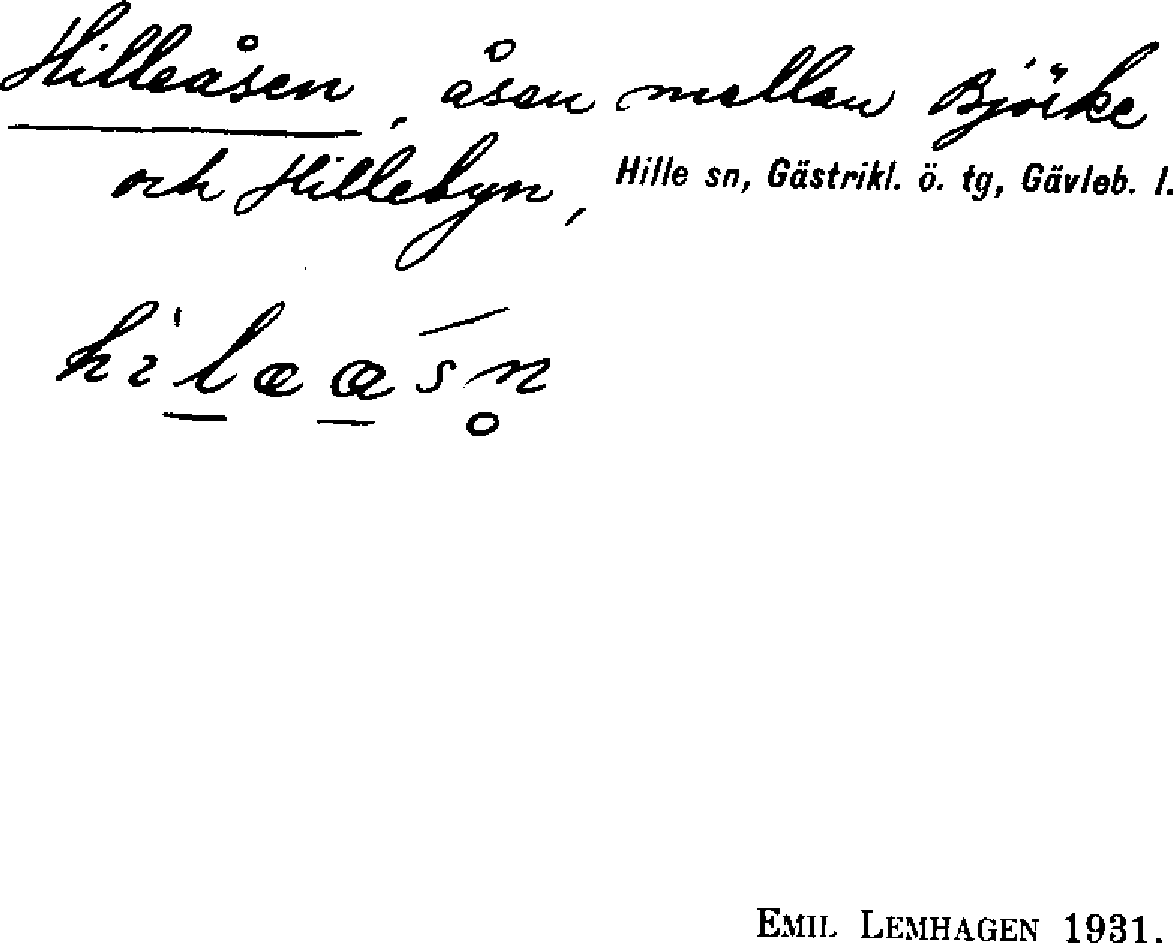 Hilleåsen, åsen mellan Björke
och Hillebyn, Hille sn, Gästrikl. ö. tg, Gävleb. l.
EMIL LEMHAGEN 1931.